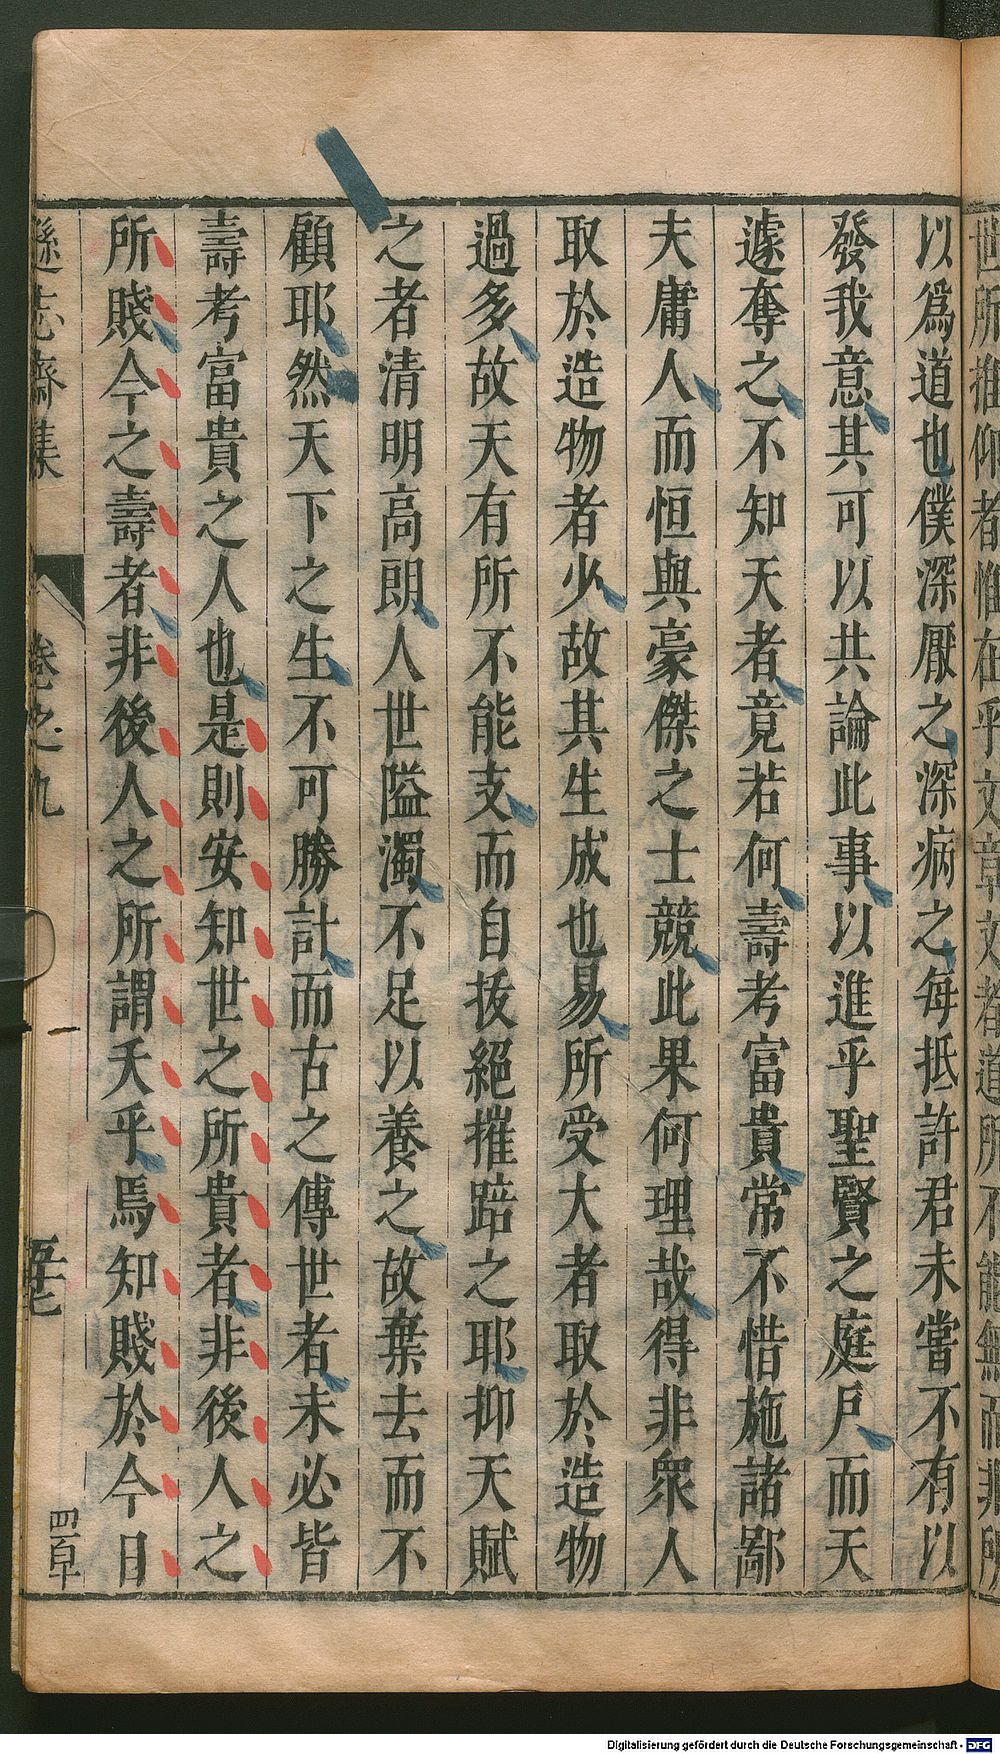 世所推仰者惟在乎文章文者道所不能無而非所
以爲道也僕深厭之深病之每抵許君未嘗不有以
發我意其可以共論此事以進乎聖賢之庭戶而天
遽奪之不知天者竟若何壽考富貴常不惜施諸鄙
夫庸人而恒與豪傑之士競此果何理哉得非衆人
取於造物者少故其生成也易所受大者取於造物
過多故天有所不能支而自拔絕摧踣之耶抑天賦
之者清明高朗人世隘濁不足以養之故棄去而不
顧耶然天下之生不可勝計而古之傳世者未必皆
壽考富貴之人也是則安知世之所貴者非後人之
所賤今之壽者非後人之所謂夭乎焉知賤於今日
遜志齋集 卷之九 五七 四百卒
Digitalisierung gefördert durch die Deutsche Forschungsgemeinschaft - DFG